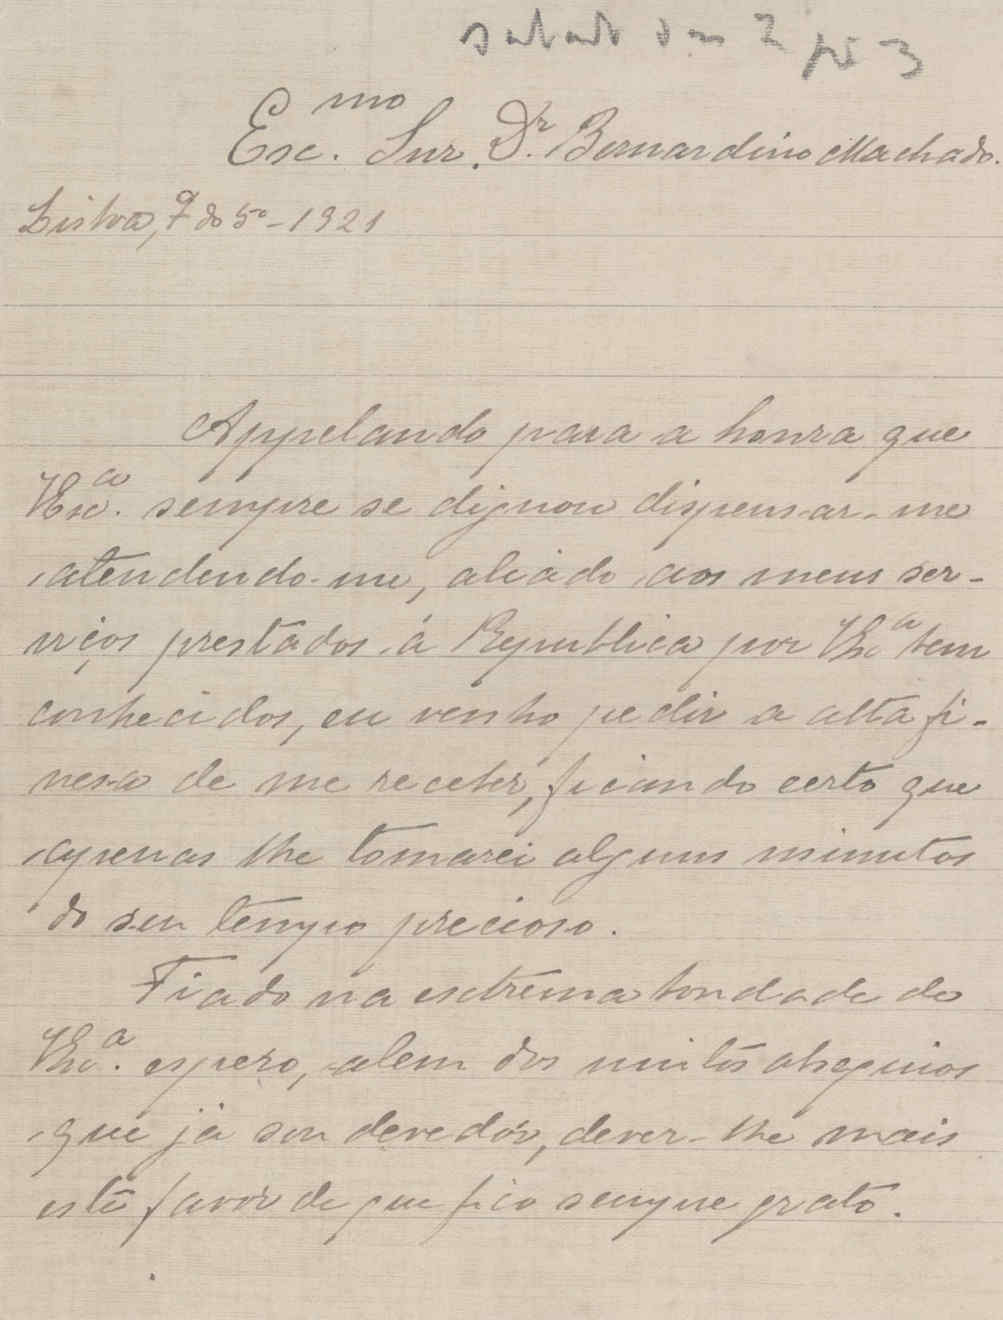 sabado das 2 às 3
Exc.mo Snr. Dr. Bernardino Machado.
Lisboa, 7 do 5º - 1921
Appelando para a honra que
VExc.a sempre se dignou dispensar-me
atendendo-me, aliado aos meus ser-
viços prestados á Republica por VExc.a bem
conhecidos, eu venho pedir a alta fi-
nesa de me receber, ficando certo que
apenas lhe tomarei alguns minutos
do seu tempo precioso.
Fiado na extrema bondade de
VExc.a espero, alem dos muitos obsequios
que já sou devedor, dever-lhe mais
este favor de que fico sempre grato.